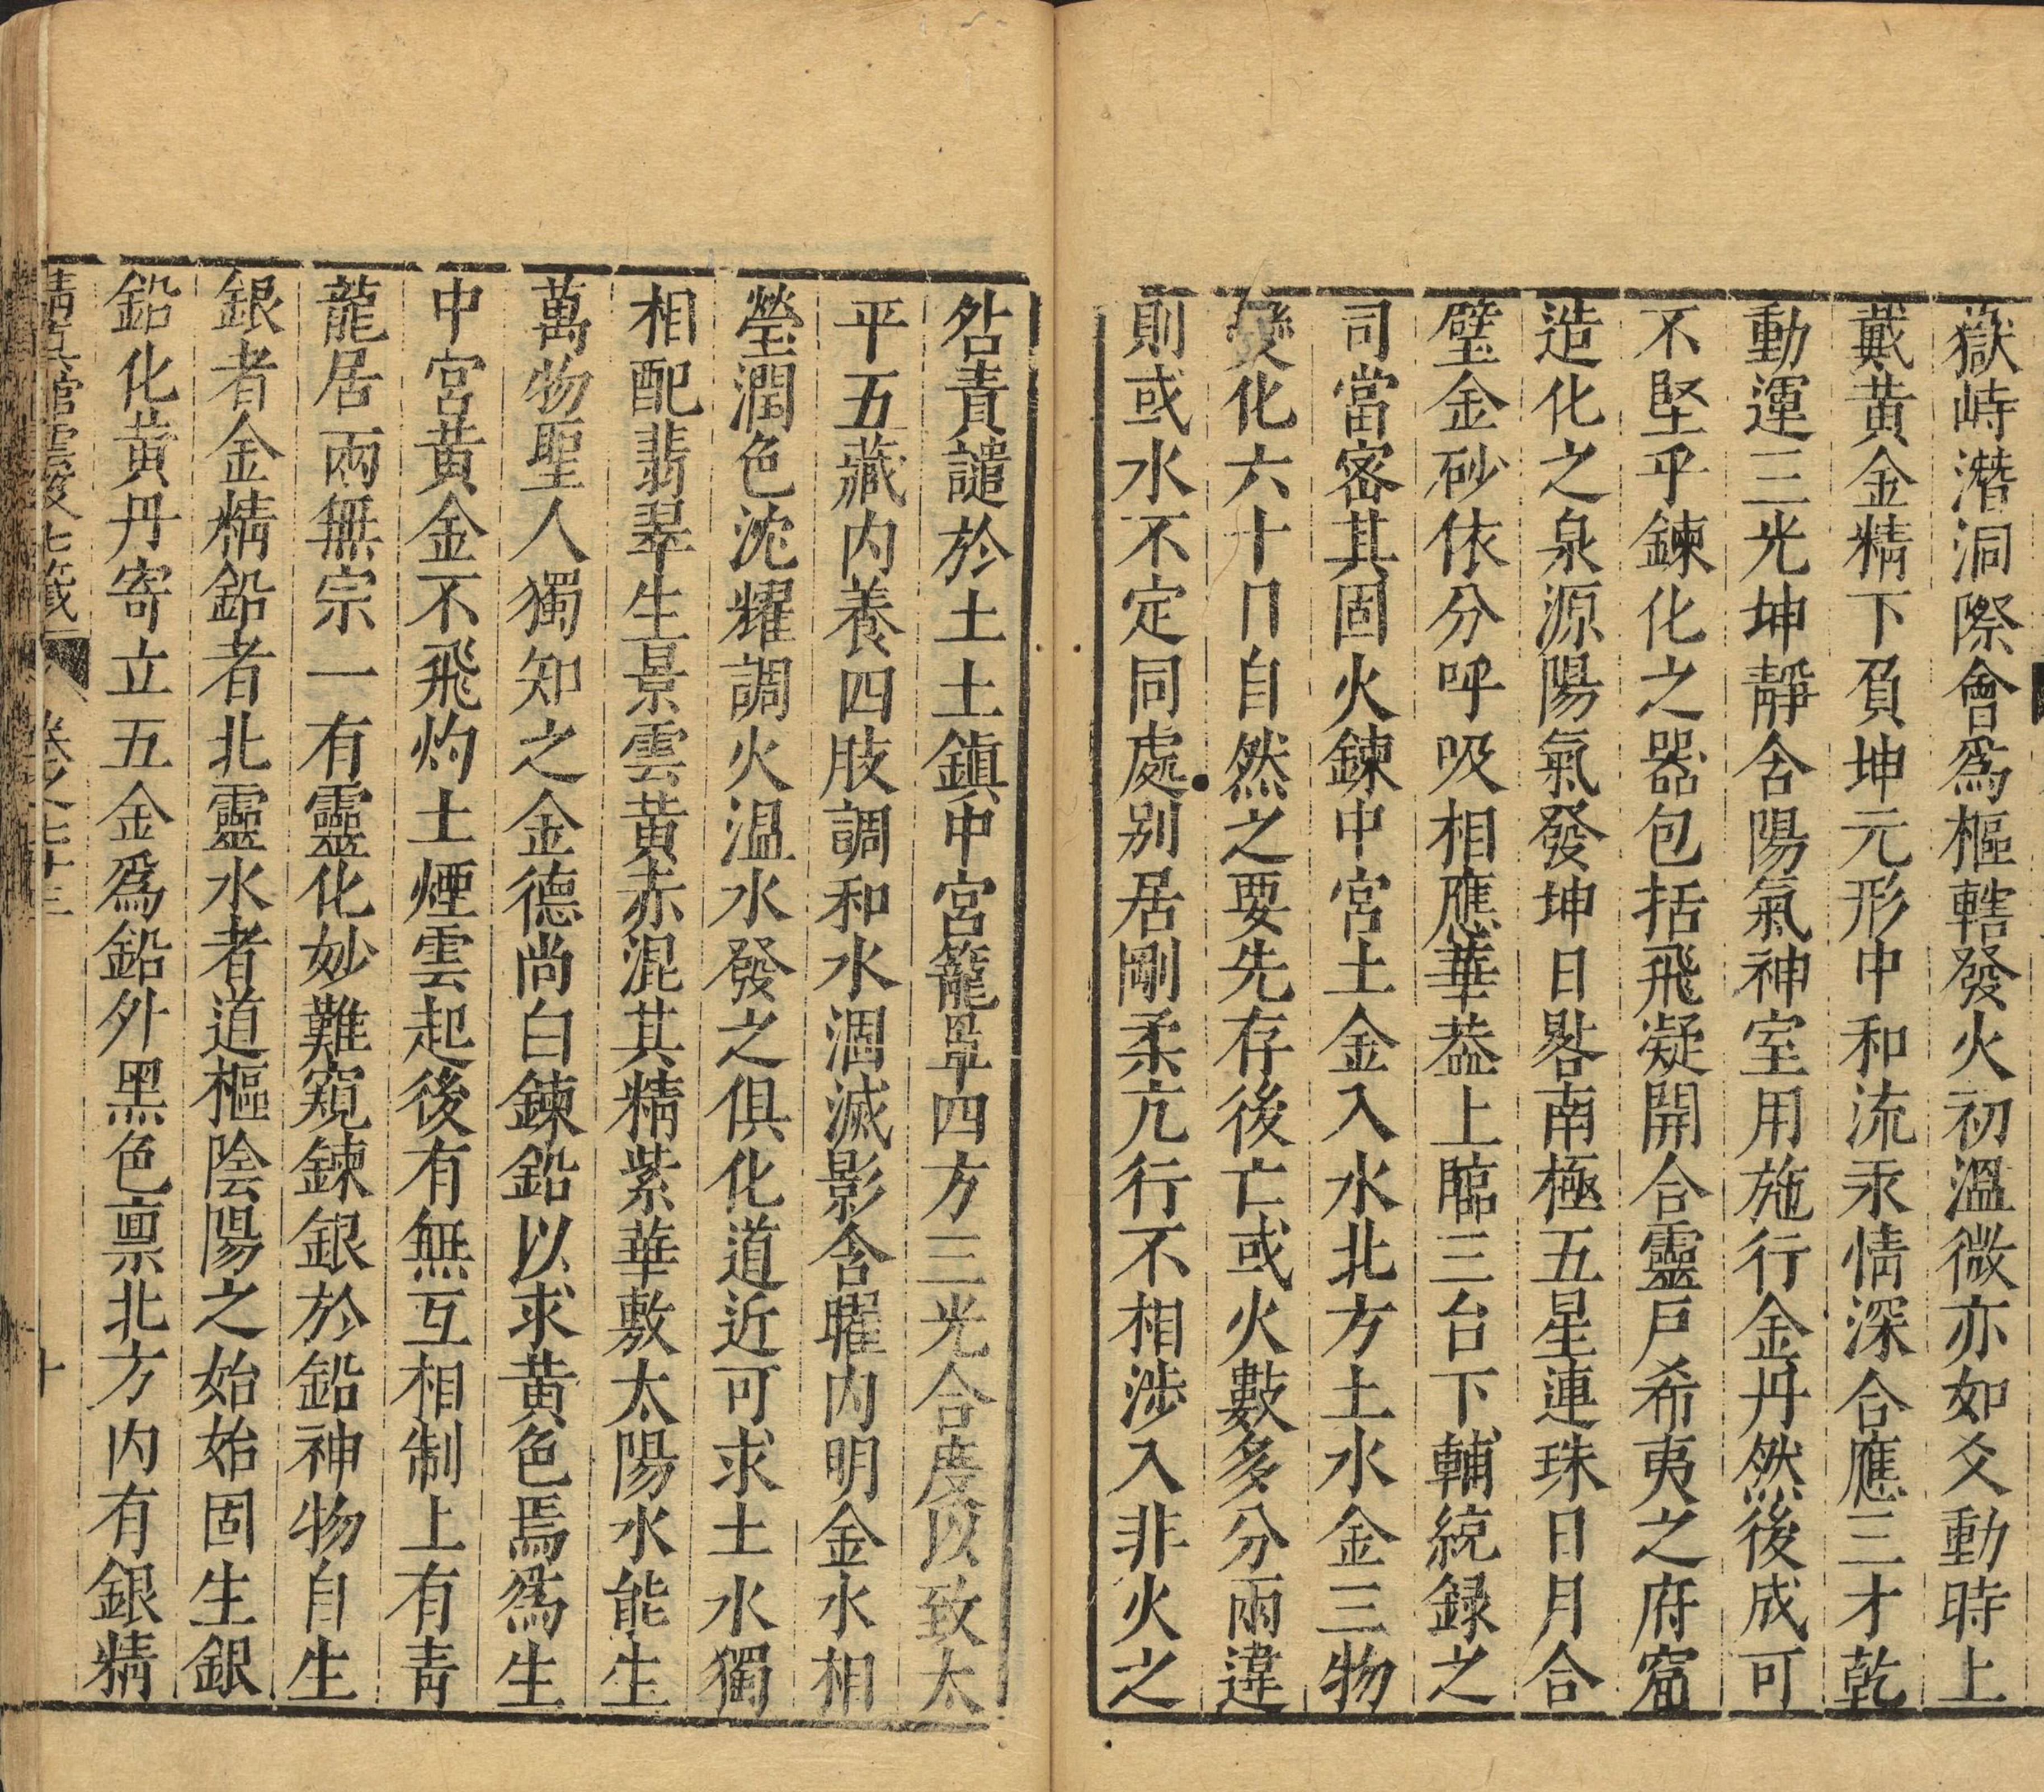 嶽峙潛洞際會爲樞轄發火初溫微亦如爻動時上
戴黃金精下負坤元形中和流汞情深合應三才乾
動運三光坤靜含陽氣神室用施行金丹然後成可
不堅乎鍊化之器包括飛凝開合靈戸希夷之府窟
造化之泉源陽氣發坤日晷南極五星連珠日月合
璧金砂依分呼吸相應華葢上臨三台下輔統録之
司當密其固火鍊中宮土金入水北方土水金三物
變化六十日自然之要先存後亡或火數多分兩違
則或水不定同處别居剛柔亢行不相涉入非火之
咎責譴於土土鎮中宮籠罩四方三光合度以致太
平五藏内養四肢調和水涸滅影含曜内明金水相
瑩潤色沈耀調火温水發之俱化道近可求土水獨
相配翡翠生景雲黃赤混其精紫華敷太陽水能生
萬物聖人獨知之金德尚白鍊鉛以求黃色焉爲生
中宮黃金不飛灼土煙雲起後有無互相制上有青
龍居兩無宗一有靈化妙難窺鍊銀於鉛神物自生
銀者金精鉛者北靈水者道樞陰陽之始始固生銀
鉛化黃丹寄立五金爲鉛外黑色禀北方内有銀精
清真館雲笈七籤 卷之七十三 十